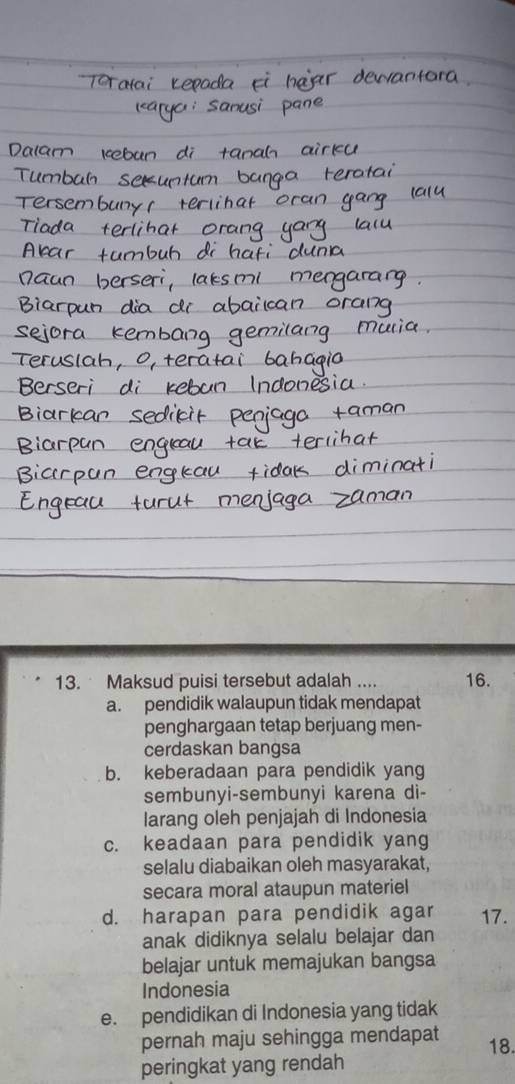 Teratai kepada ki hajar dewantara.
karya: sanusi pane
Dalam kebun di tanah airku
Tumbuh sekuntum bunga teratai
Tersembunyi terlihat oran yang lalu
Tiada terlihat orang yang lalu
Akar tumbuh di hati dunia
Daun berseri, laksmi mengarang.
Biarpun dia di abaikan orang
sejora kembang gemilang mulia.
Teruslah, o, teratai bahagia
Berseri di kebun Indonesia.
Biarkan sedikit penjaga taman
Biarpun engkau tak terlihat
Biarpun engkau tidak diminati
Engkau turut menjaga zaman
13. Maksud puisi tersebut adalah ....
a. pendidik walaupun tidak mendapat
penghargaan tetap berjuang men-
cerdaskan bangsa
b. keberadaan para pendidik yang
sembunyi-sembunyi karena di-
larang oleh penjajah di Indonesia
c. keadaan para pendidik yang
selalu diabaikan oleh masyarakat,
secara moral ataupun materiel
d. harapan para pendidik agar
anak didiknya selalu belajar dan
belajar untuk memajukan bangsa
Indonesia
e. pendidikan di Indonesia yang tidak
pernah maju sehingga mendapat
peringkat yang rendah
16.
17.
18.